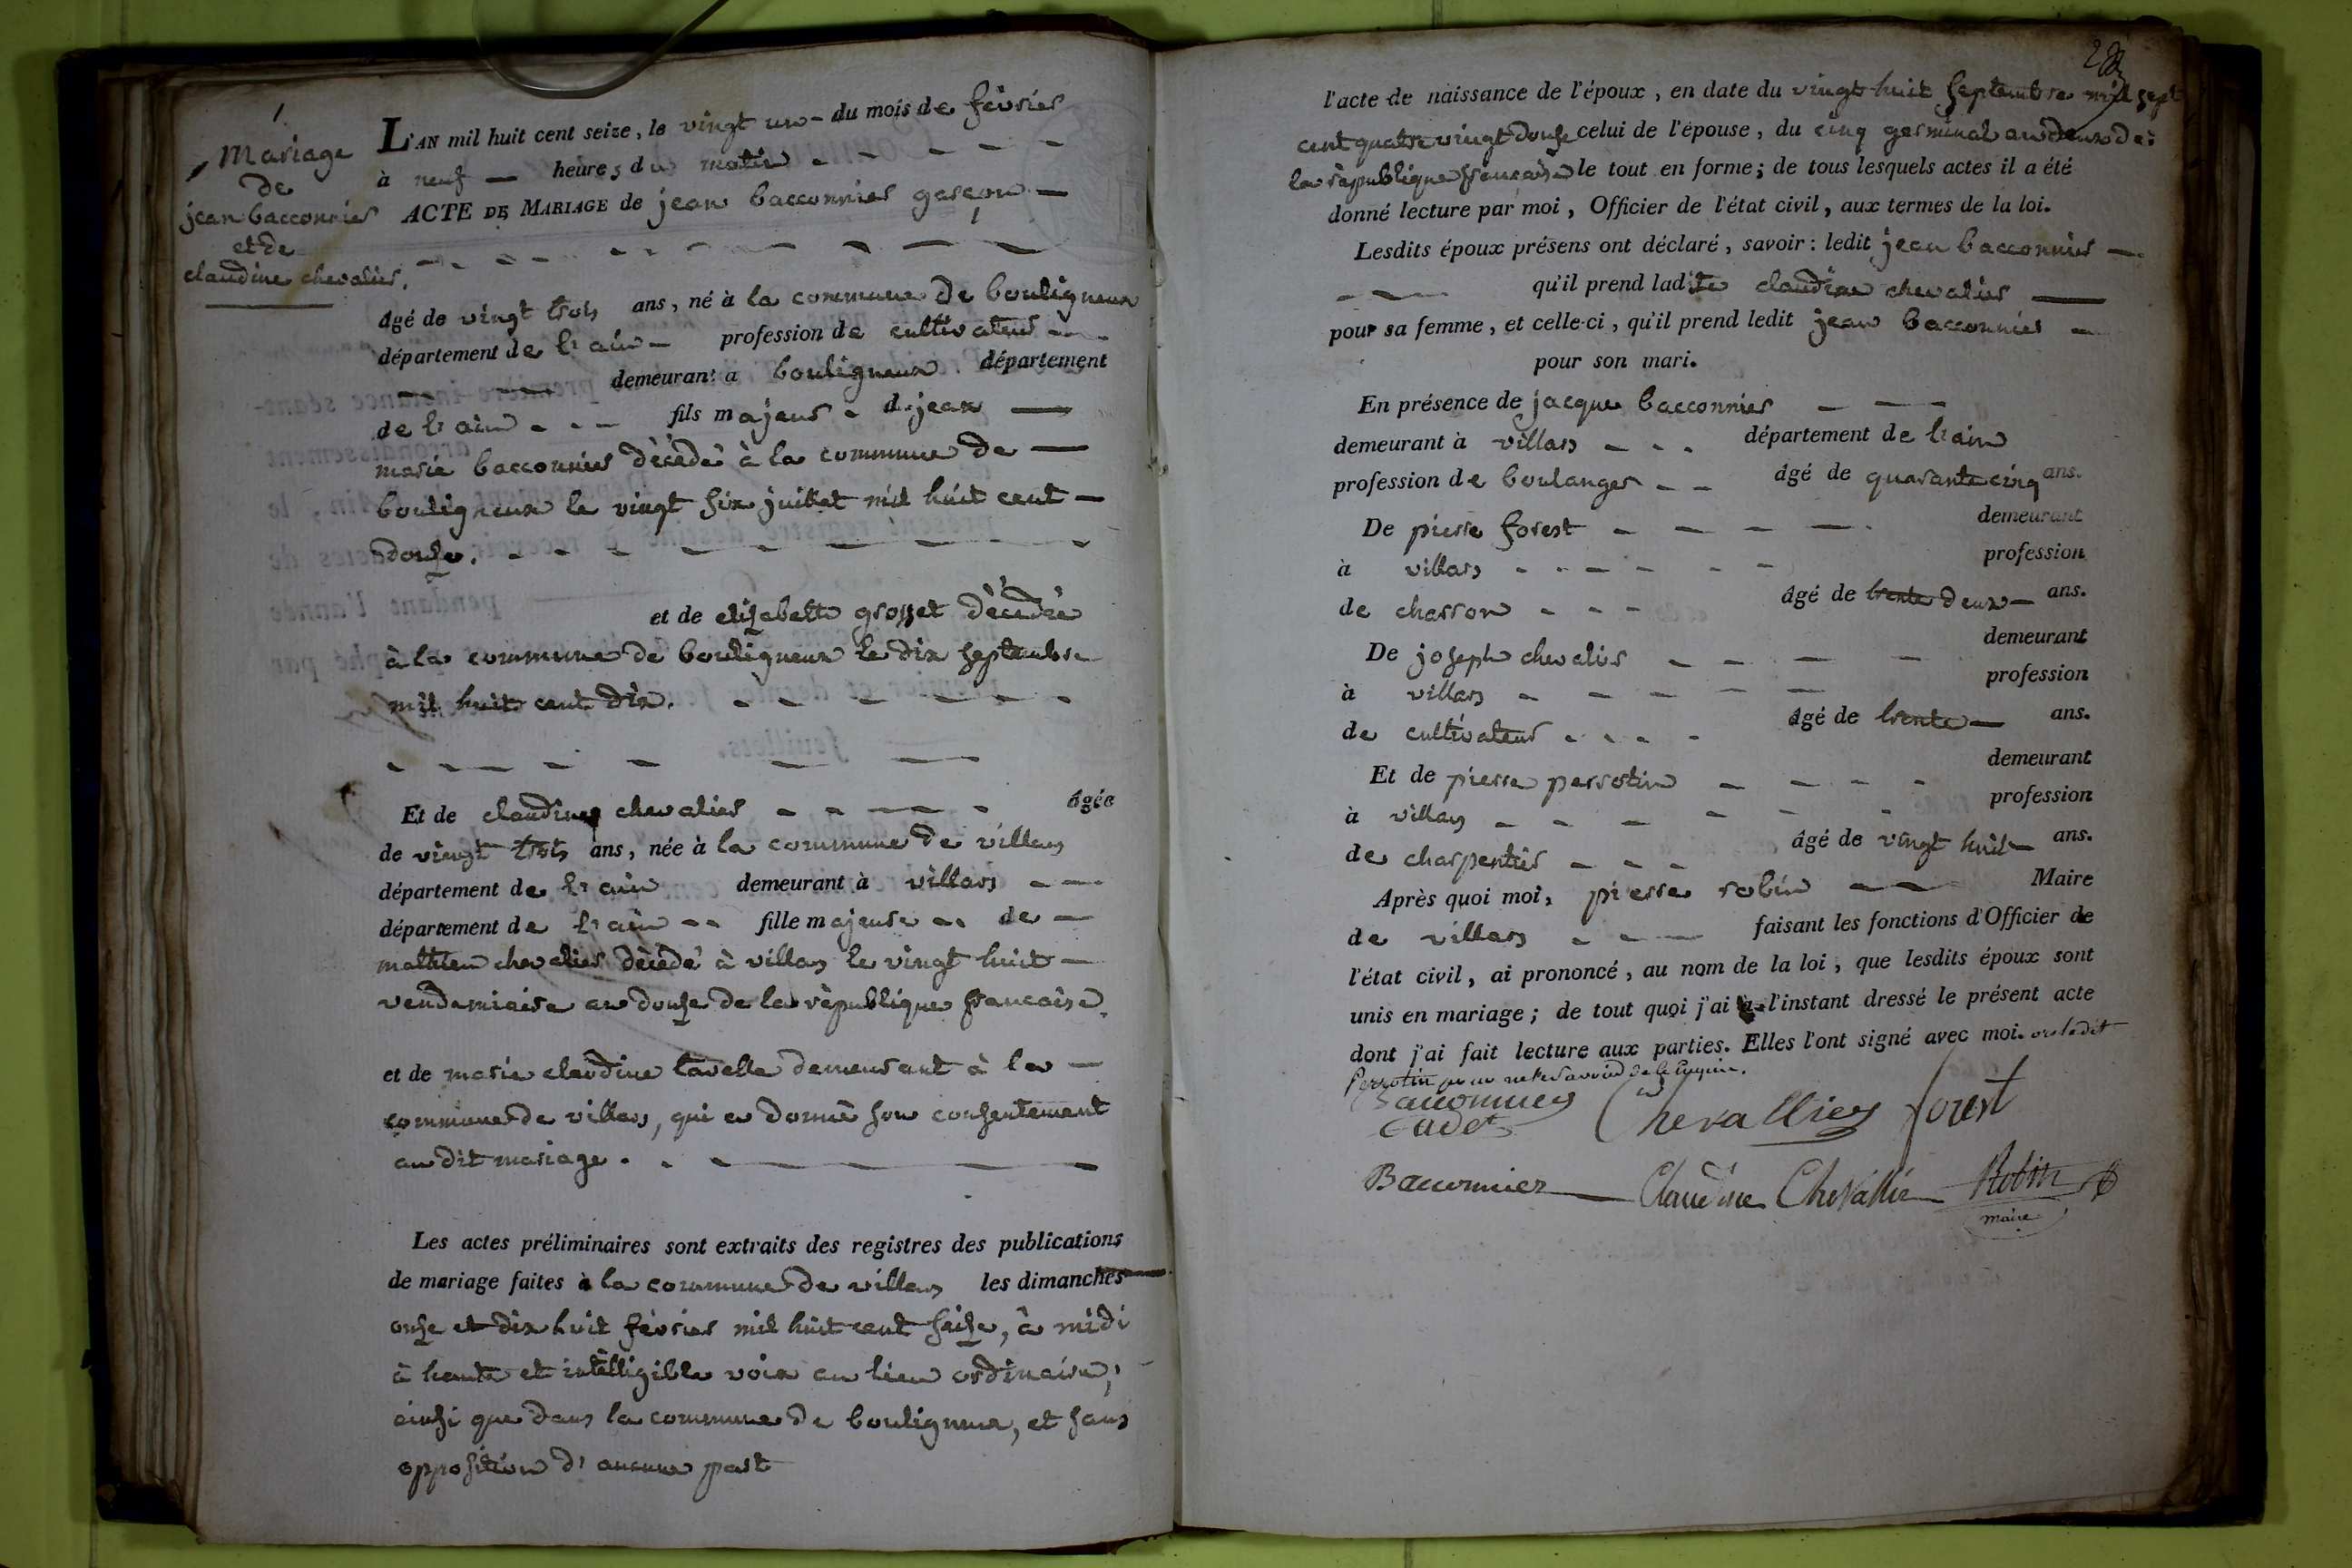 1
Mariage
de
jean bacconnier
et de
claudine chevalier.
L'AN mil huit cent seize, le vingt un du mois de février
à neuf heures du matin
ACTE DE MARIAGE de jean bacconnier garçon
âgé de vingt trois ans, né à la commune de bouligneux
département de l'ain profession de cultivateur
demeurant a bouligneux département
de l'ain fils majeur d. jean
marie bacconnier décédé à la commune de
bouligneux le vingt six juillet mil huit cent
douse.
et de elisabette grosset décédée
à la commune de bouligneux le dix septembre
mil huit cent dix.
Et de claudine chevalier âgée
de vingt trois ans, née à la commune de villars
département de l'ain demeurant à villars
département de l'ain fille majeure de
mathieu chevalier décédé à villars le vingt huit
vendemiaire an douse de la république francaise.
et de marie claudine lavelle demeurant à la
commune de villars, qui a donné son consentement
au dit mariage.
Les actes préliminaires sont extraits des registres des publications
de mariage faites à la commune de villars les dimanches
onse et dix huit février mil huit cent seise, à midi
à haute et intélligible voix au lieu ordinaire,
ainsi que dans la commune de bouligneux, et sans
opposition d'aucune part
l'acte de naissance de l'époux, en date du vingt huit septembre mil sept
cent quatre vingt douse celui de l'épouse, du cinq germinal an deux de
la république francaise le tout en forme; de tous lesquels actes il a été
donné lecture par moi, Officier de l'état civil, aux termes de la loi.
Lesdits époux présens ont déclaré, savoir: ledit jean bacconnier
qu'il prend ladite claudine chevalier
pour sa femme, et celle-ci, qu'il prend ledit jean bacconnier
pour son mari.
En présence de jacque bacconnier
demeurant à villars département de l'ain
profession de boulanger âgé de quarante cinq ans.
De pierre forest demeurant
à villars profession
de charron âgé de trente deux ans.
De joseph chevalier demeurant
à villars profession
de cultivateur âgé de trente ans.
Et de pierre perrotin demeurant
à villars profession
de charpentier âgé de vingt huit ans.
Après quoi moi, pierre robin Maire
de villars faisant les fonctions d'Officier de
l'état civil, ai prononcé, au nom de la loi, que lesdits époux sont
unis en mariage; de tout quoi j'ai à l'instant dressé le présent acte
dont j'ai fait lecture aux parties. Elles l'ont signé avec moi. ledit
Perrotin pour ne le savoir de ce requis.
Bacconnier Chevallier forest
Cadet
Bacconnier Claudine Chevallie Robin
maire